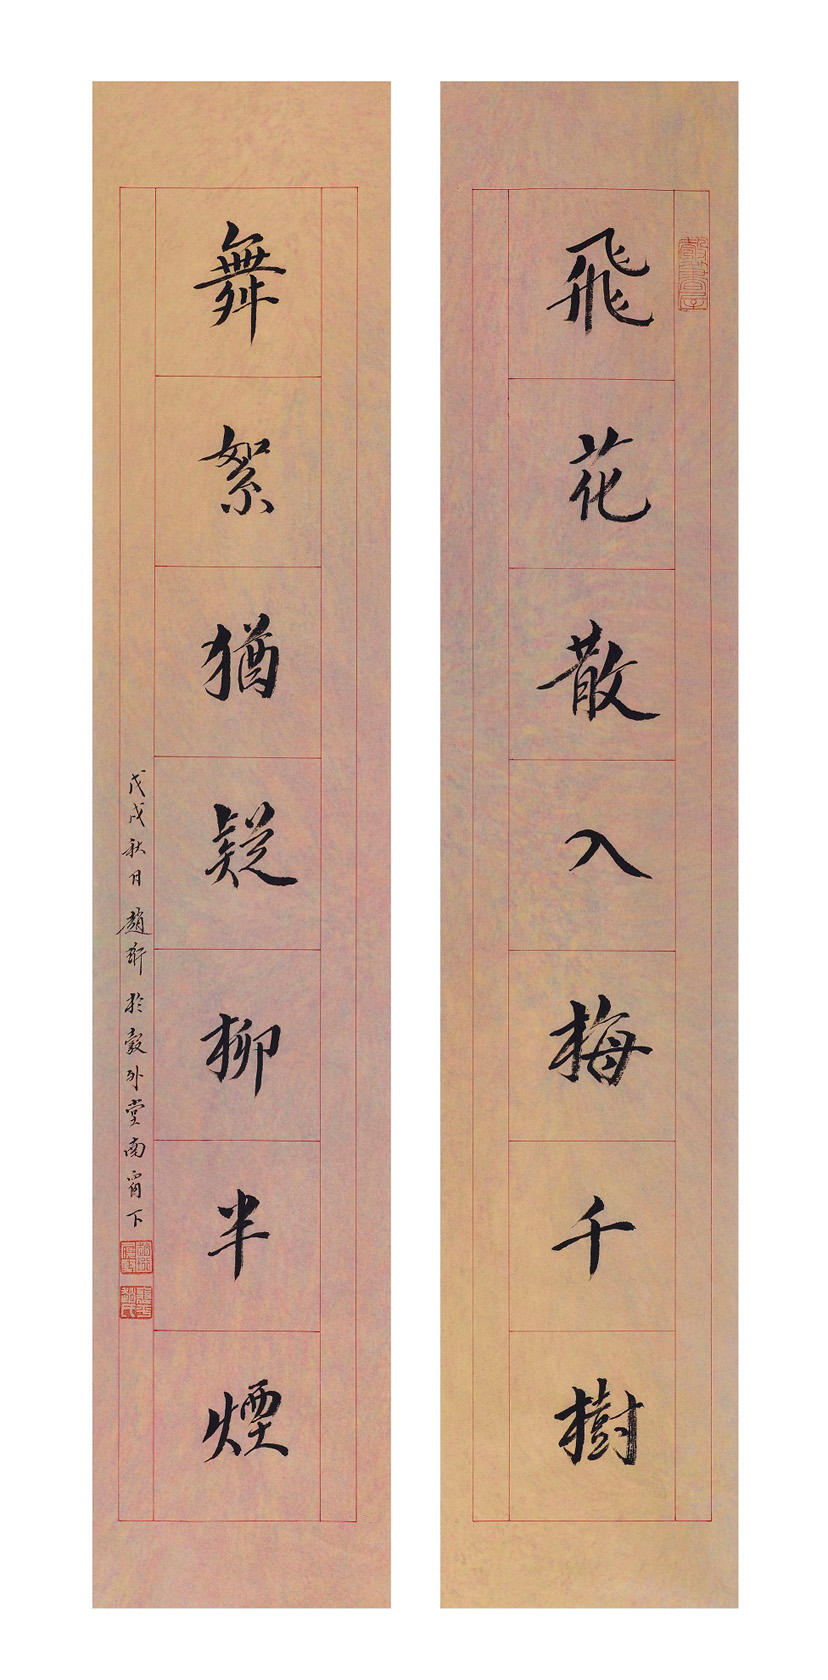 飛花散入梅千樹
舞絮猶疑柳半煙
戊戌秋日趙珩於彀外堂南窗下